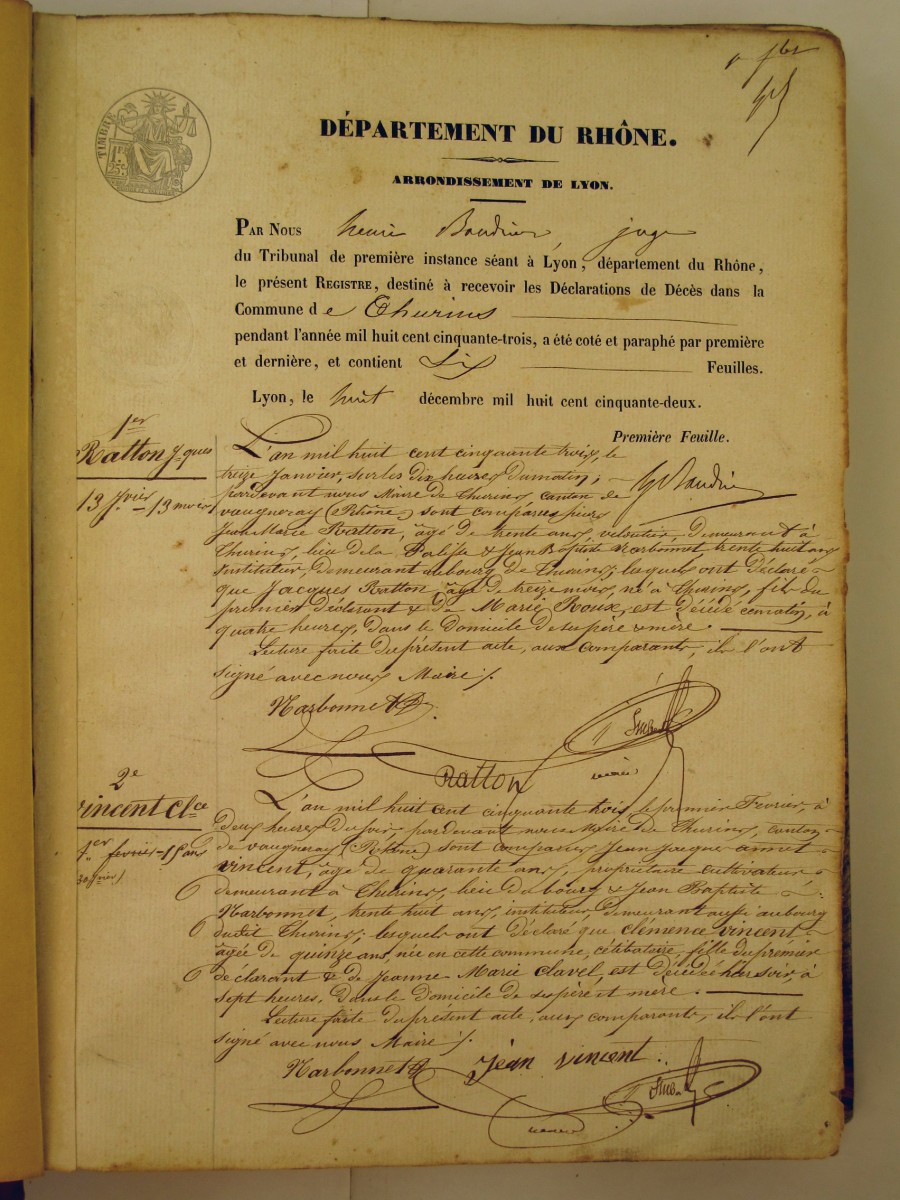 TIMBRE
1F.
25c.
DÉPARTEMENT DU RHÔNE.
ARRONDISSEMENT DE LYON.
PAR NOUS henri Baudrier, juge
du Tribunal de première instance séant à Lyon, département du Rhône,
le présent REGISTRE, destiné à recevoir les Déclarations de Décès dans la
Commune de Thurins
pendant l'année mil huit cent cinquante-trois, a été coté et paraphé par première
et dernière, et contient Six Feuilles.
Lyon, le huit décembre mil huit cent cinquante-deux.
Première Feuille.
1er
Ratton Jques
13 Jvier - 13 mois
L'an mil huit cent cinquante trois, le
treize Janvier, sur les dix heures du matin,
pardevant nous Maire de Thurins, canton de
vaugneray (Rhône) sont comparus sieurs
Jean Marie Ratton, âgé de trente ans, veloutier, demeurant à
Thurins, lieu de la & Jean Baptiste Narbonnet trente huit ans
instituteur, demeurant au bourg de Thurins; lesquels ont déclaré
que Jacques Ratton âgé de treize mois, né à Thurins, fils du
premier déclarant & de Marie Roux, est décédé ce matin, à
quatre heures, dans le domicile de ses père & mère.
Lecture faite du présent acte, aux comparants, ils l'ont
signé avec nous Maire /.
Narbonnet
Ratton
maire
2e
vincent Clce
1er fevrier - 15 ans
30 Jvier
L'an mil huit cent cinquante trois le premier Février, à
deux heures du soir, pardevant nous Maire de Thurins, canton
de vaugneray (Rhône) sont comparus Jean Jacques annet
vincent, âgé de quarante ans, propriétaire cultivateur
demeurant à Thurins, lieu du bourg & Jean Baptiste
Narbonnet, trente huit ans, instituteur, demeurant aussi au bourg
dudit Thurins; lesquels ont déclaré que clémence vincent
âgée de quinze ans, née en cette commune, célibataire, fille du premier
déclarant & de Jeanne Marie Clavel, est décédée hier soir, à
sept heures, dans le domicile de ses père et mère.
Lecture faite du présent acte, aux comparants, ils l'ont
signé avec nous Maire /.
Narbonnet
Jean vincent
maire